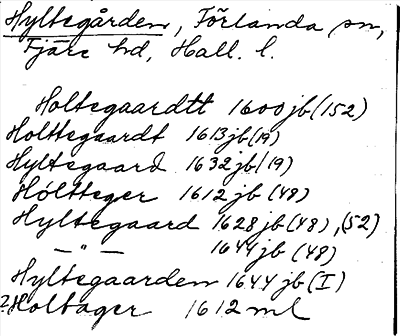 Hyltegården, Förlanda sn,
Fjäre hd, Hall. l.
Holtegaardtt 1600 jb (152)
Holttegaardt 1613 jb (19)
Hyltegaard 1632 jb (19)
Höltteger 1612 jb (48)
Hyltegaard 1628 jb (48), (52)
— " — 1644 jb (48)
Hyltegaarden 1644 jb (I)
? Holtager 1612 ml